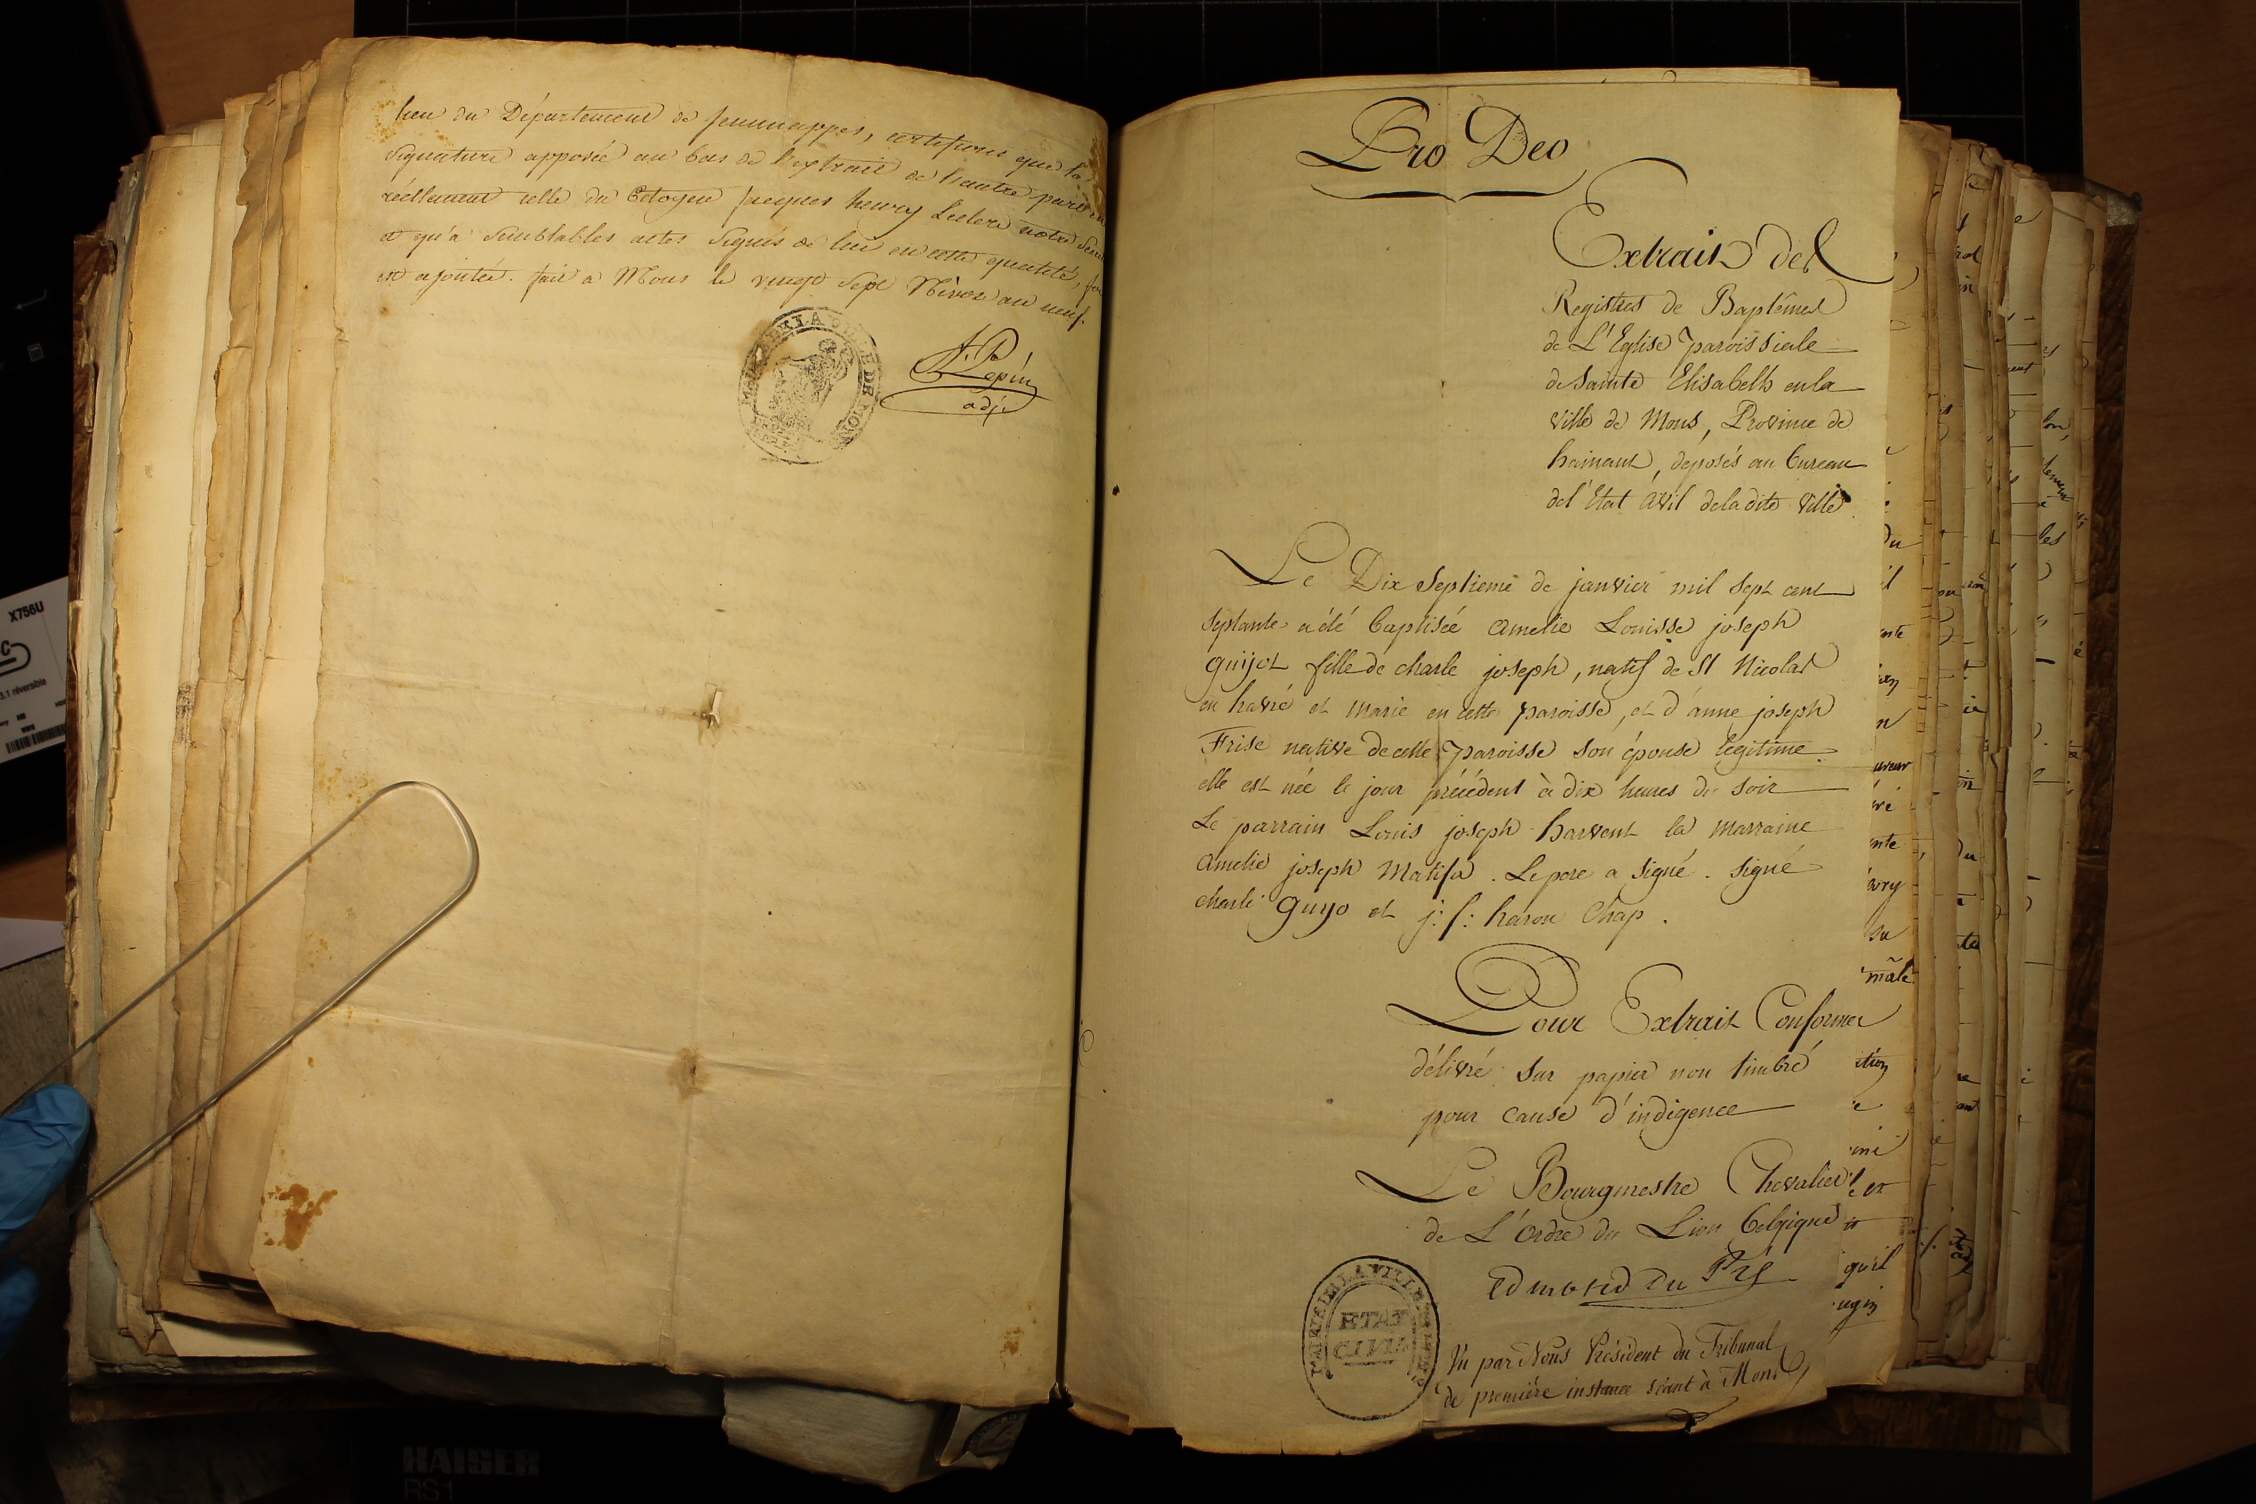 lieu du Département de Jemmappes, certifions que la
signature apposée au bas de l'extrait de l'autre part est
réellement celle du Citoyen Jacques henry Leclerc notre
et qu'a semblables actes signés de lui en cette qualité, foi
est ajoutée. fait a Mons le vingt sept Nivose an neuf.
Lepin
adjt
Pro Deo
Extrait des
Registres de Baptêmes
de L'Eglise paroissiale
de Sainte Elisabeth en la
ville de Mons, Province de
hainaut, deposés au bureau
de l'Etat Civil de la dite ville
Le Dix Septieme de janvier mil Sept cent
septante a été baptisée amelie Louisse joseph
guijot fille de charle joseph, natif de St Nicolas
en havré et marié en cette paroisse, et d'anne joseph
Frise native de cette paroisse son épouse legitime.
elle est née le jour précédent à dix heures du soir
Le parrain Louis joseph harvent la marraine
amelie joseph Matifa. Le pere a signé. signé
charle guyo et j: f: haron Chap.
Pour Extrait Conforme
délivré sur papier non timbré
pour cause d'indigence
Le Bourgmestre Chevalier
de L'ordre du Lion belgique
Edmond du Pré
ETAT
CIVIL
Vu par Nous Président du Tribunal
de première instance séant à Mons
X756U
3.1 réversible
KAISER
RS1